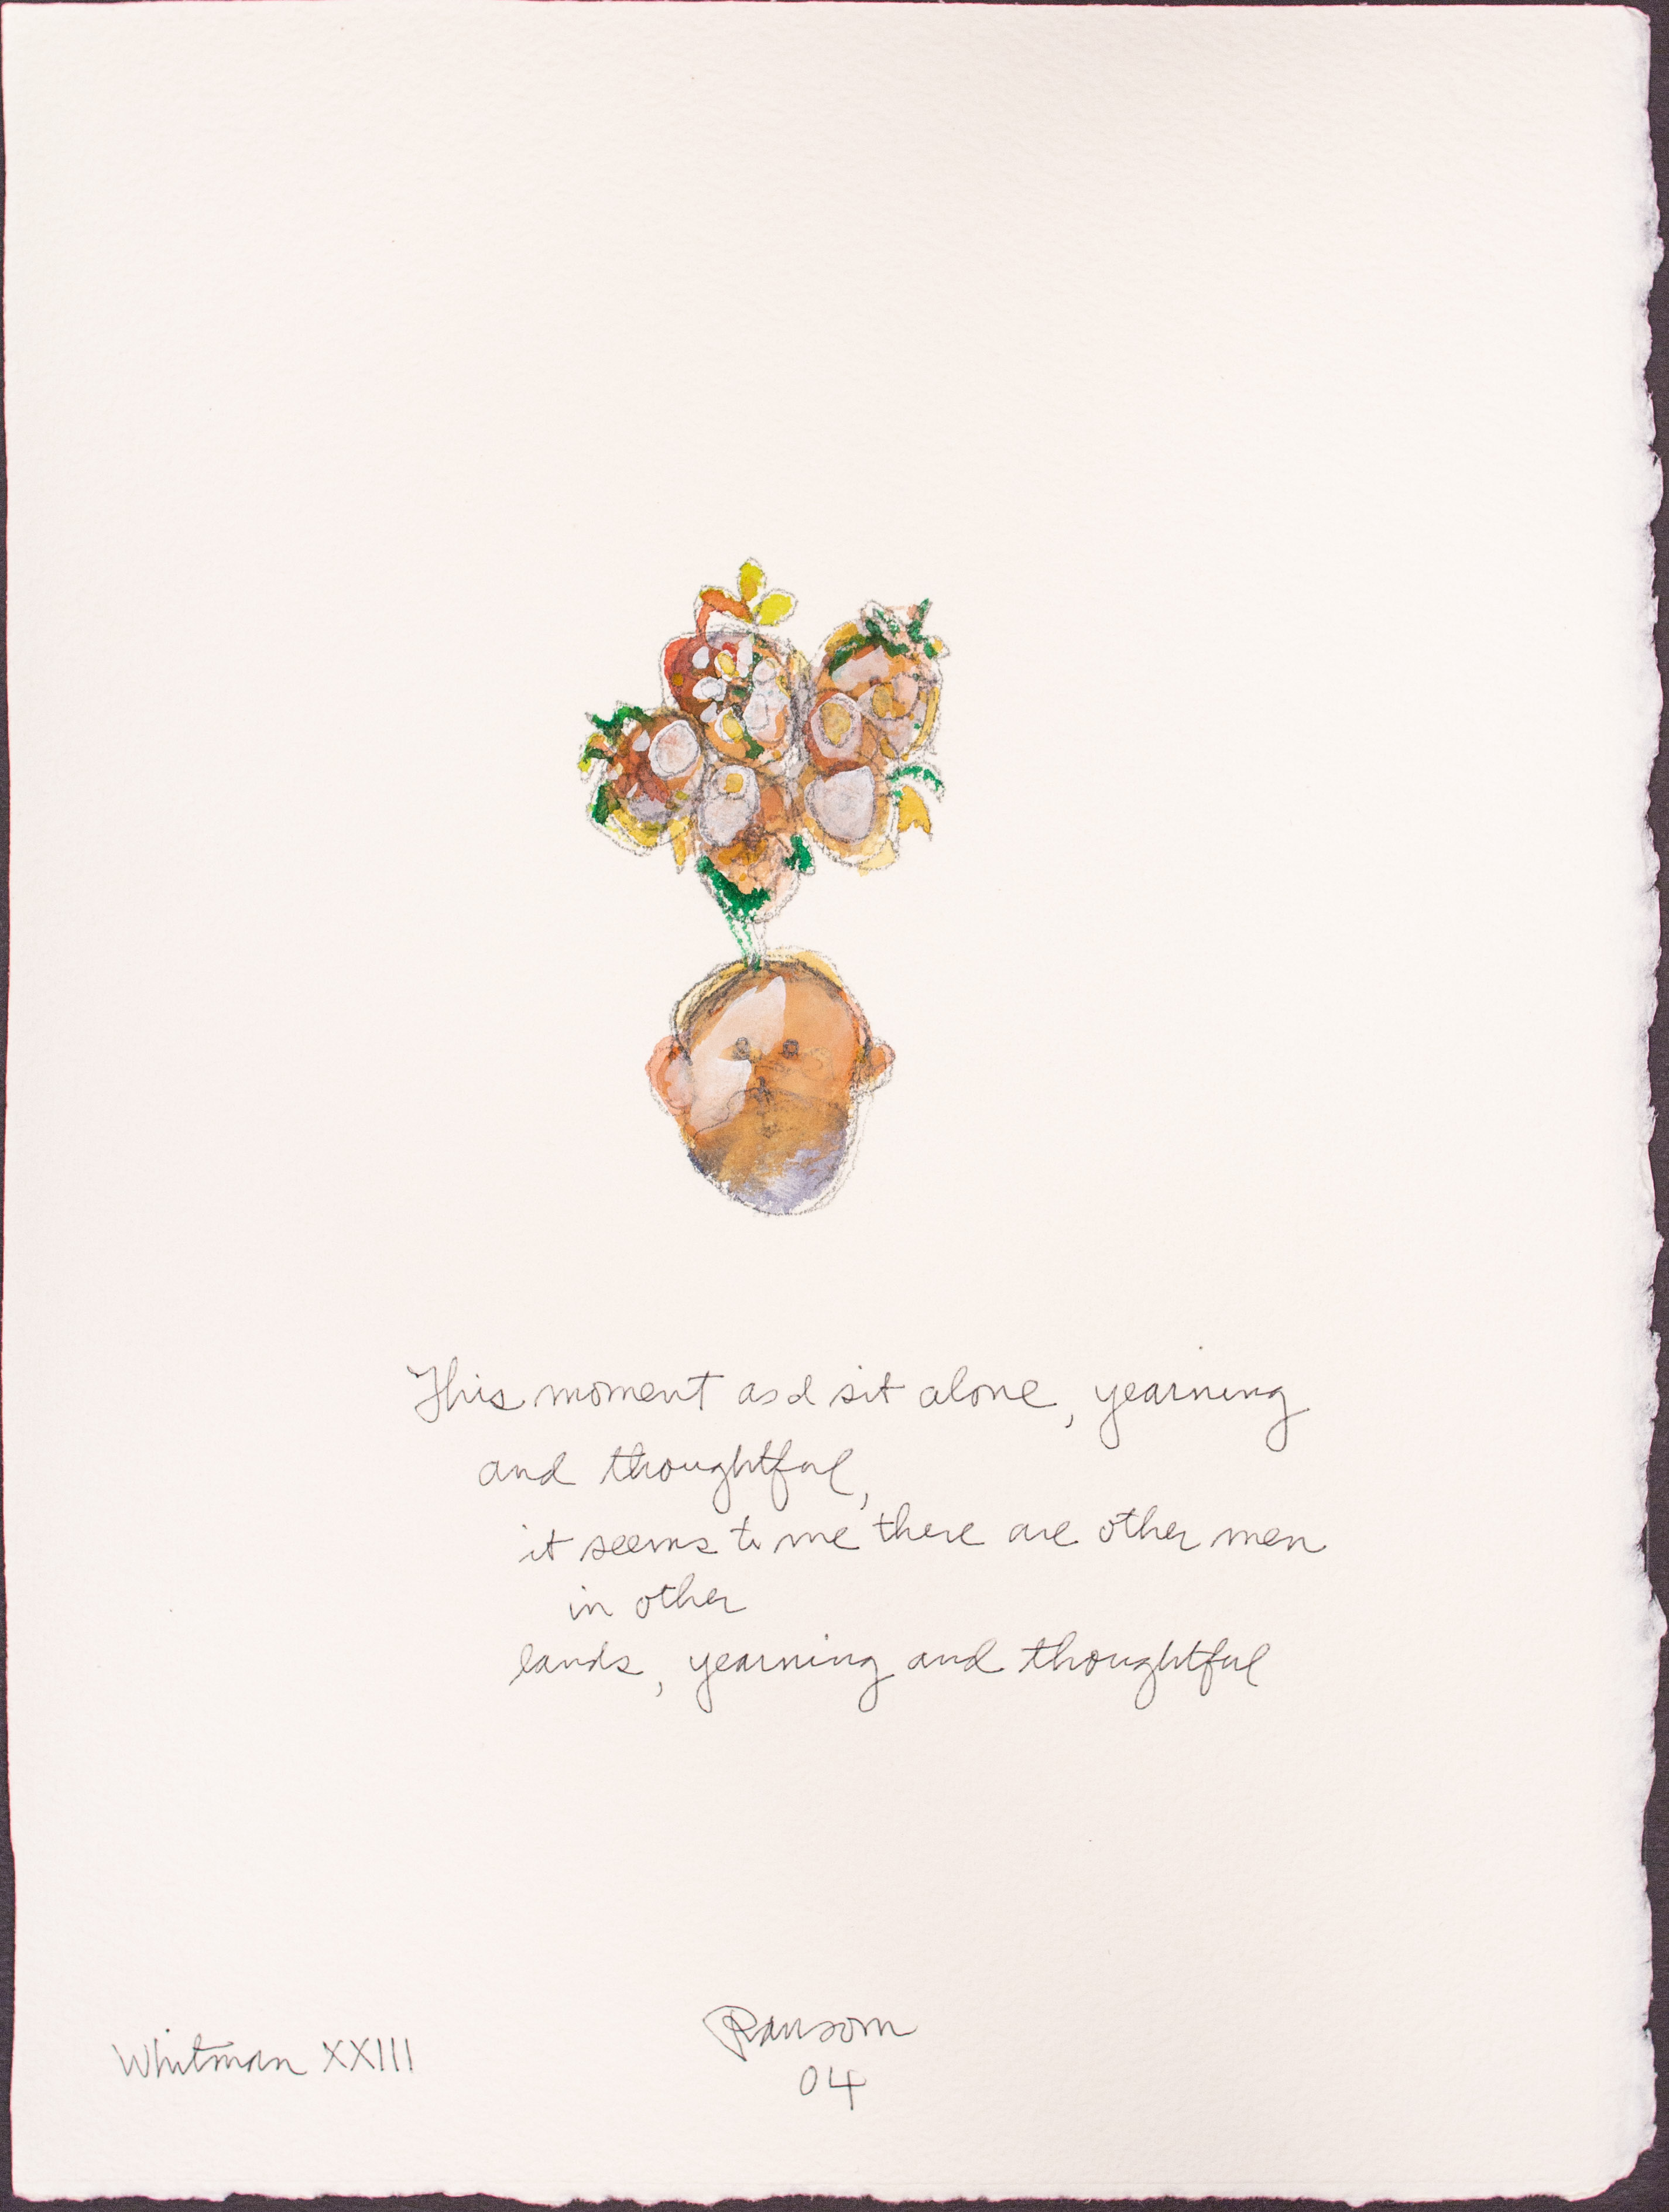 This moment as I sit alone, yearning
and thoughtful,
it seems to me there are other men
in other
lands, yearning and thoughtful
Whitman XXIII
Ransom
04